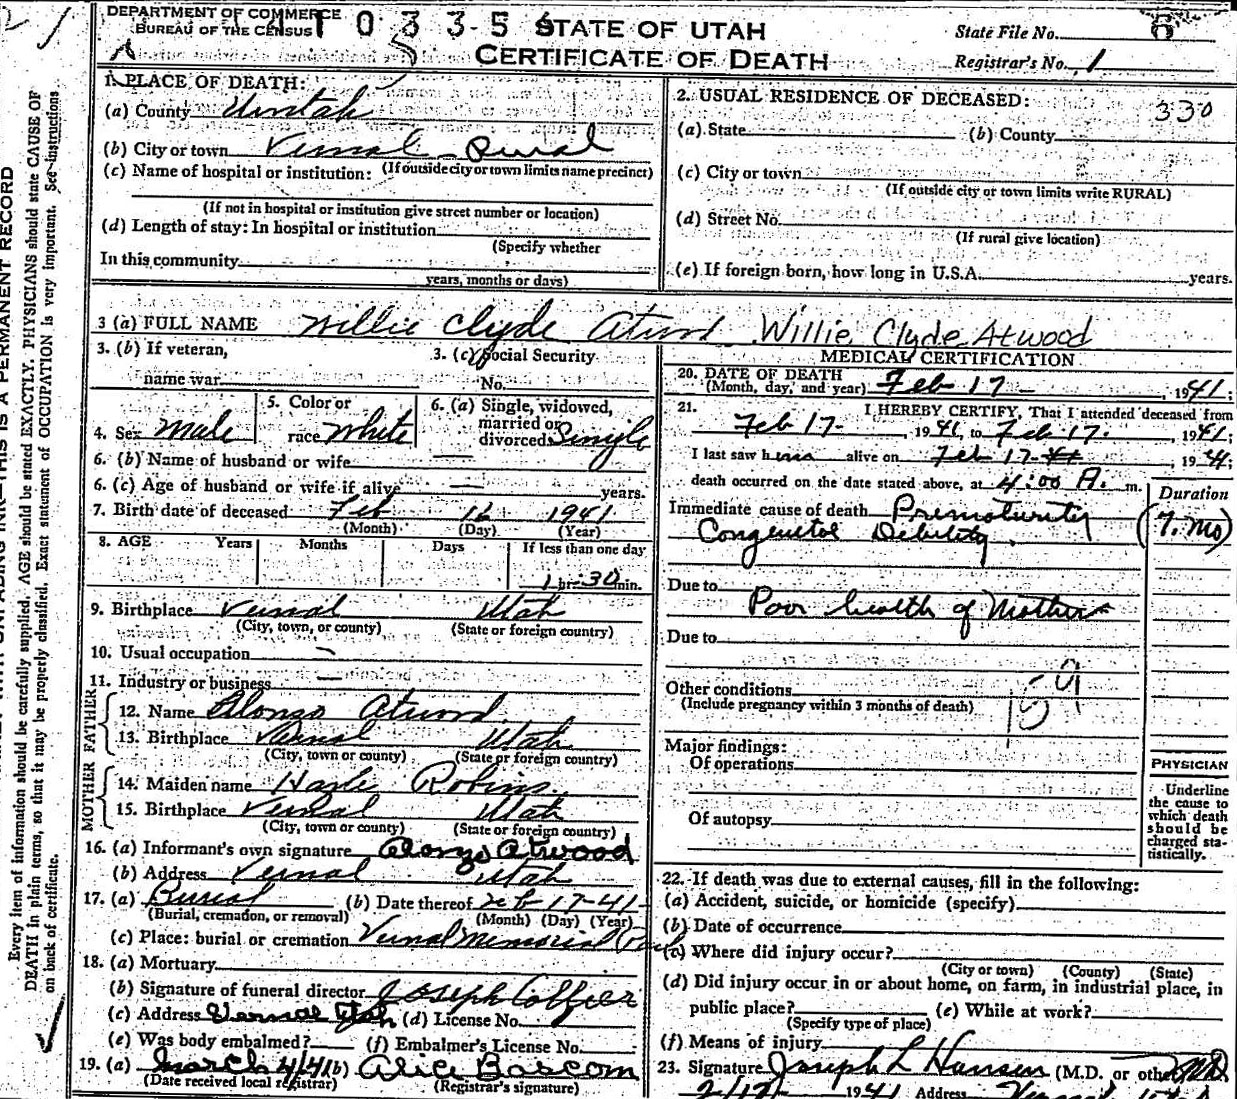 DEPARTMENT OF COMMERCE
BUREAU OF THE CENSUS
STATE OF UTAH
CERTIFICATE OF DEATH
State File No.
Registrar's No. 1
1. PLACE OF DEATH:
(a) County Uintah
(b) City or town Vernal Rural
(If outside city or town limits name precinct)
(c) Name of hospital or institution:
(If not in hospital or institution give street number or location)
(d) Length of stay: In hospital or institution
(Specify whether
In this community
years, months or days)
2. USUAL RESIDENCE OF DECEASED:
330
(a) State (b) County
(c) City or town
(If outside city or town limits write RURAL)
(d) Street No.
(If rural give location)
(e) If foreign born, how long in U.S.A. years.
3 (a) FULL NAME Willie Clyde Atwood Willie Clyde Atwood
3. (b) If veteran,
name war
3. (c) Social Security
No.
4. Sex Male
5. Color or
race White
6. (a) Single, widowed,
married or
divorced Single
6. (b) Name of husband or wife —
6. (c) Age of husband or wife if alive — years.
7. Birth date of deceased Feb 16 1941
(Month) (Day) (Year)
8. AGE Years Months Days If less than one day
1 hr. 30 min.
9. Birthplace Vernal Utah
(City, town, or county) (State or foreign country)
10. Usual occupation —
11. Industry or business —
FATHER
12. Name Alonzo Atwood
13. Birthplace Vernal Utah
(City, town or county) (State or foreign country)
MOTHER
14. Maiden name Robins
15. Birthplace Vernal Utah
(City, town or county) (State or foreign country)
16. (a) Informant's own signature Alonzo Atwood
(b) Address Vernal Utah
17. (a) Burial (b) Date thereof Feb 17-41
(Burial, cremation, or removal) (Month) (Day) (Year)
(c) Place: burial or cremation Vernal Memorial Park
18. (a) Mortuary
(b) Signature of funeral director Joseph Collier
(c) Address Vernal Utah (d) License No.
(e) Was body embalmed? (f) Embalmer's License No.
19. (a) March 4/41 (b) Alice Bascom
(Date received local registrar) (Registrar's signature)
MEDICAL CERTIFICATION
20. DATE OF DEATH
(Month, day, and year) Feb 17 - , 1941;
21. I HEREBY CERTIFY, That I attended deceased from
Feb 17- , 1941, to Feb 17. , 1941;
I last saw him alive on Feb 17- , 1941;
death occurred on the date stated above, at 4:00 A. m.
Duration
Immediate cause of death Prematurity (7. Mo)
Congenital Debility.
Due to
Poor health of Mother
Due to
Other conditions
(Include pregnancy within 3 months of death)
159
Major findings:
Of operations
Of autopsy
PHYSICIAN
Underline
the cause to
which death
should be
charged sta-
tistically.
22. If death was due to external causes, fill in the following:
(a) Accident, suicide, or homicide (specify)
(b) Date of occurrence
(c) Where did injury occur?
(City or town) (County) (State)
(d) Did injury occur in or about home, on farm, in industrial place, in
public place? (e) While at work?
(Specify type of place)
(f) Means of injury
23. Signature Joseph L Hansen (M.D. or other) M.D.
2/17 1941 Address Vernal Utah
THIS IS A PERMANENT RECORD
Every item of information should be carefully supplied. AGE should be stated EXACTLY. PHYSICIANS should state CAUSE OF
DEATH in plain terms, so that it may be properly classified. Exact statement of OCCUPATION is very important. See instructions
on back of certificate.